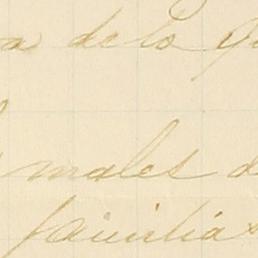 a de lo qu
males d
familias